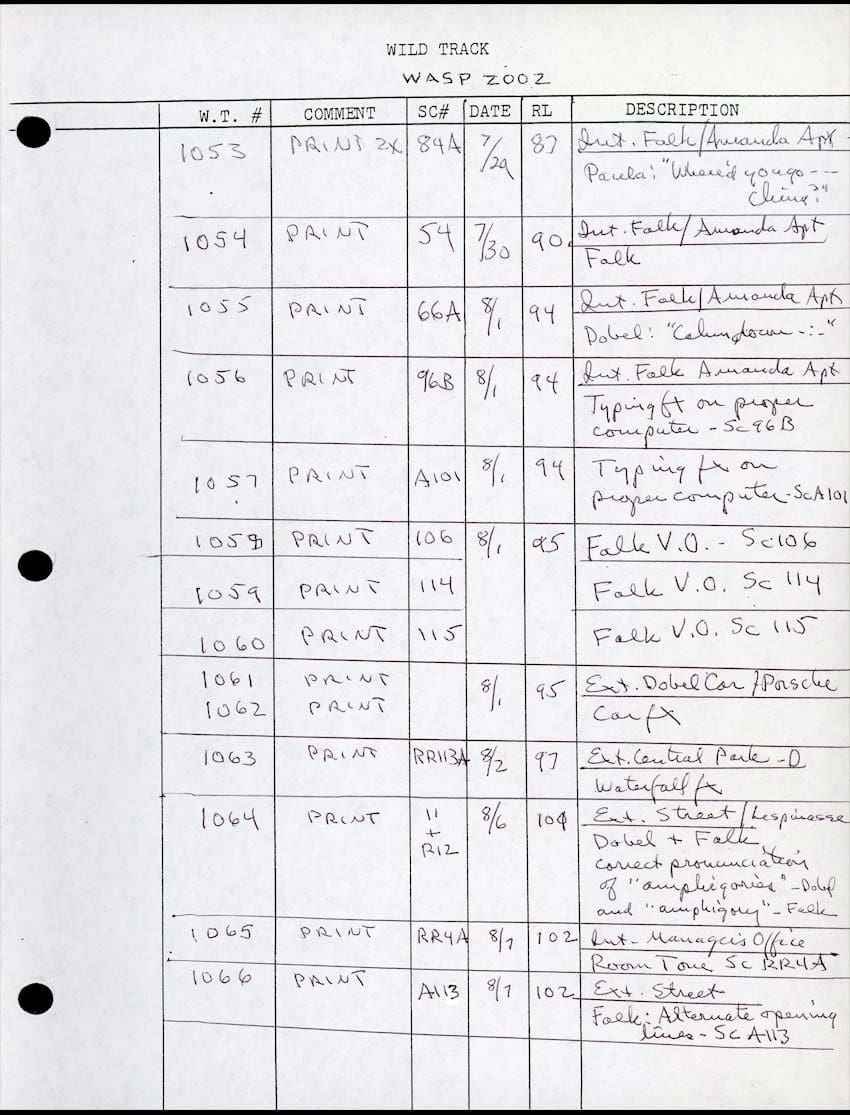 WILD TRACK
WASP 2002
W.T. # COMMENT SC# DATE RL DESCRIPTION
1053 PRINT 2X 84A 7/29 87 Int. Falk/Amanda Apt -
Paula: "Where'd you go ---
China?"
1054 PRINT 54 7/30 90 Int. Falk/Amanda Apt
Falk
1055 PRINT 66A 8/1 94 Int. Falk/Amanda Apt
Dobel: "Calm down -:-"
1056 PRINT 96B 8/1 94 Int. Falk Amanda Apt
Typing fx on proper
computer - Sc 96B
1057 PRINT A101 8/1 94 Typing fx on
proper computer - Sc A101
1058 PRINT 106 8/1 95 Falk V.O. - Sc 106
1059 PRINT 114 Falk V.O. Sc 114
1060 PRINT 115 Falk V.O. Sc 115
1061 PRINT 8/1 95 Ext. Dobel Car/Porsche
1062 PRINT Car fx
1063 PRINT RR113A 8/2 97 Ext. Central Park - D
Waterfall fx
1064 PRINT 11 + R12 8/6 101 Ext. Street/Lespinasse
Dobel + Falk,
correct pronunciation
of "amphigories" - Dobel
and "amphigory" - Falk
1065 PRINT RR4A 8/7 102 Int - Manager's Office
Room Tone Sc RR4A
1066 PRINT A113 8/7 102 Ext. Street
Falk: Alternate opening
lines - Sc A113